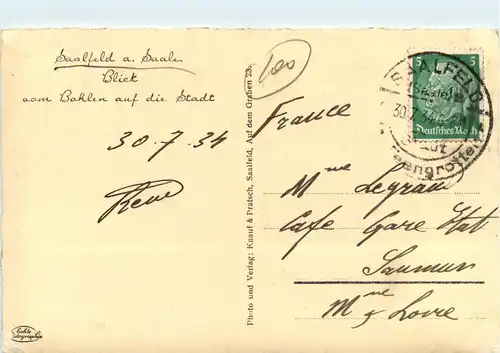 Saalfeld a. Saale.
Blick
vom Bohlen auf die Stadt
30.7.34
René
100
Photo und Verlag: Knauf & Pratsch, Saalfeld, Auf dem Graben 23.
5 5
Deutsches Reich
SAALFELD
(Saale)
30.7.34
Feengrotten
France
Mme Legrand
Café Gare Etat
Saumur
Mne & Loire
Echte
Photographie